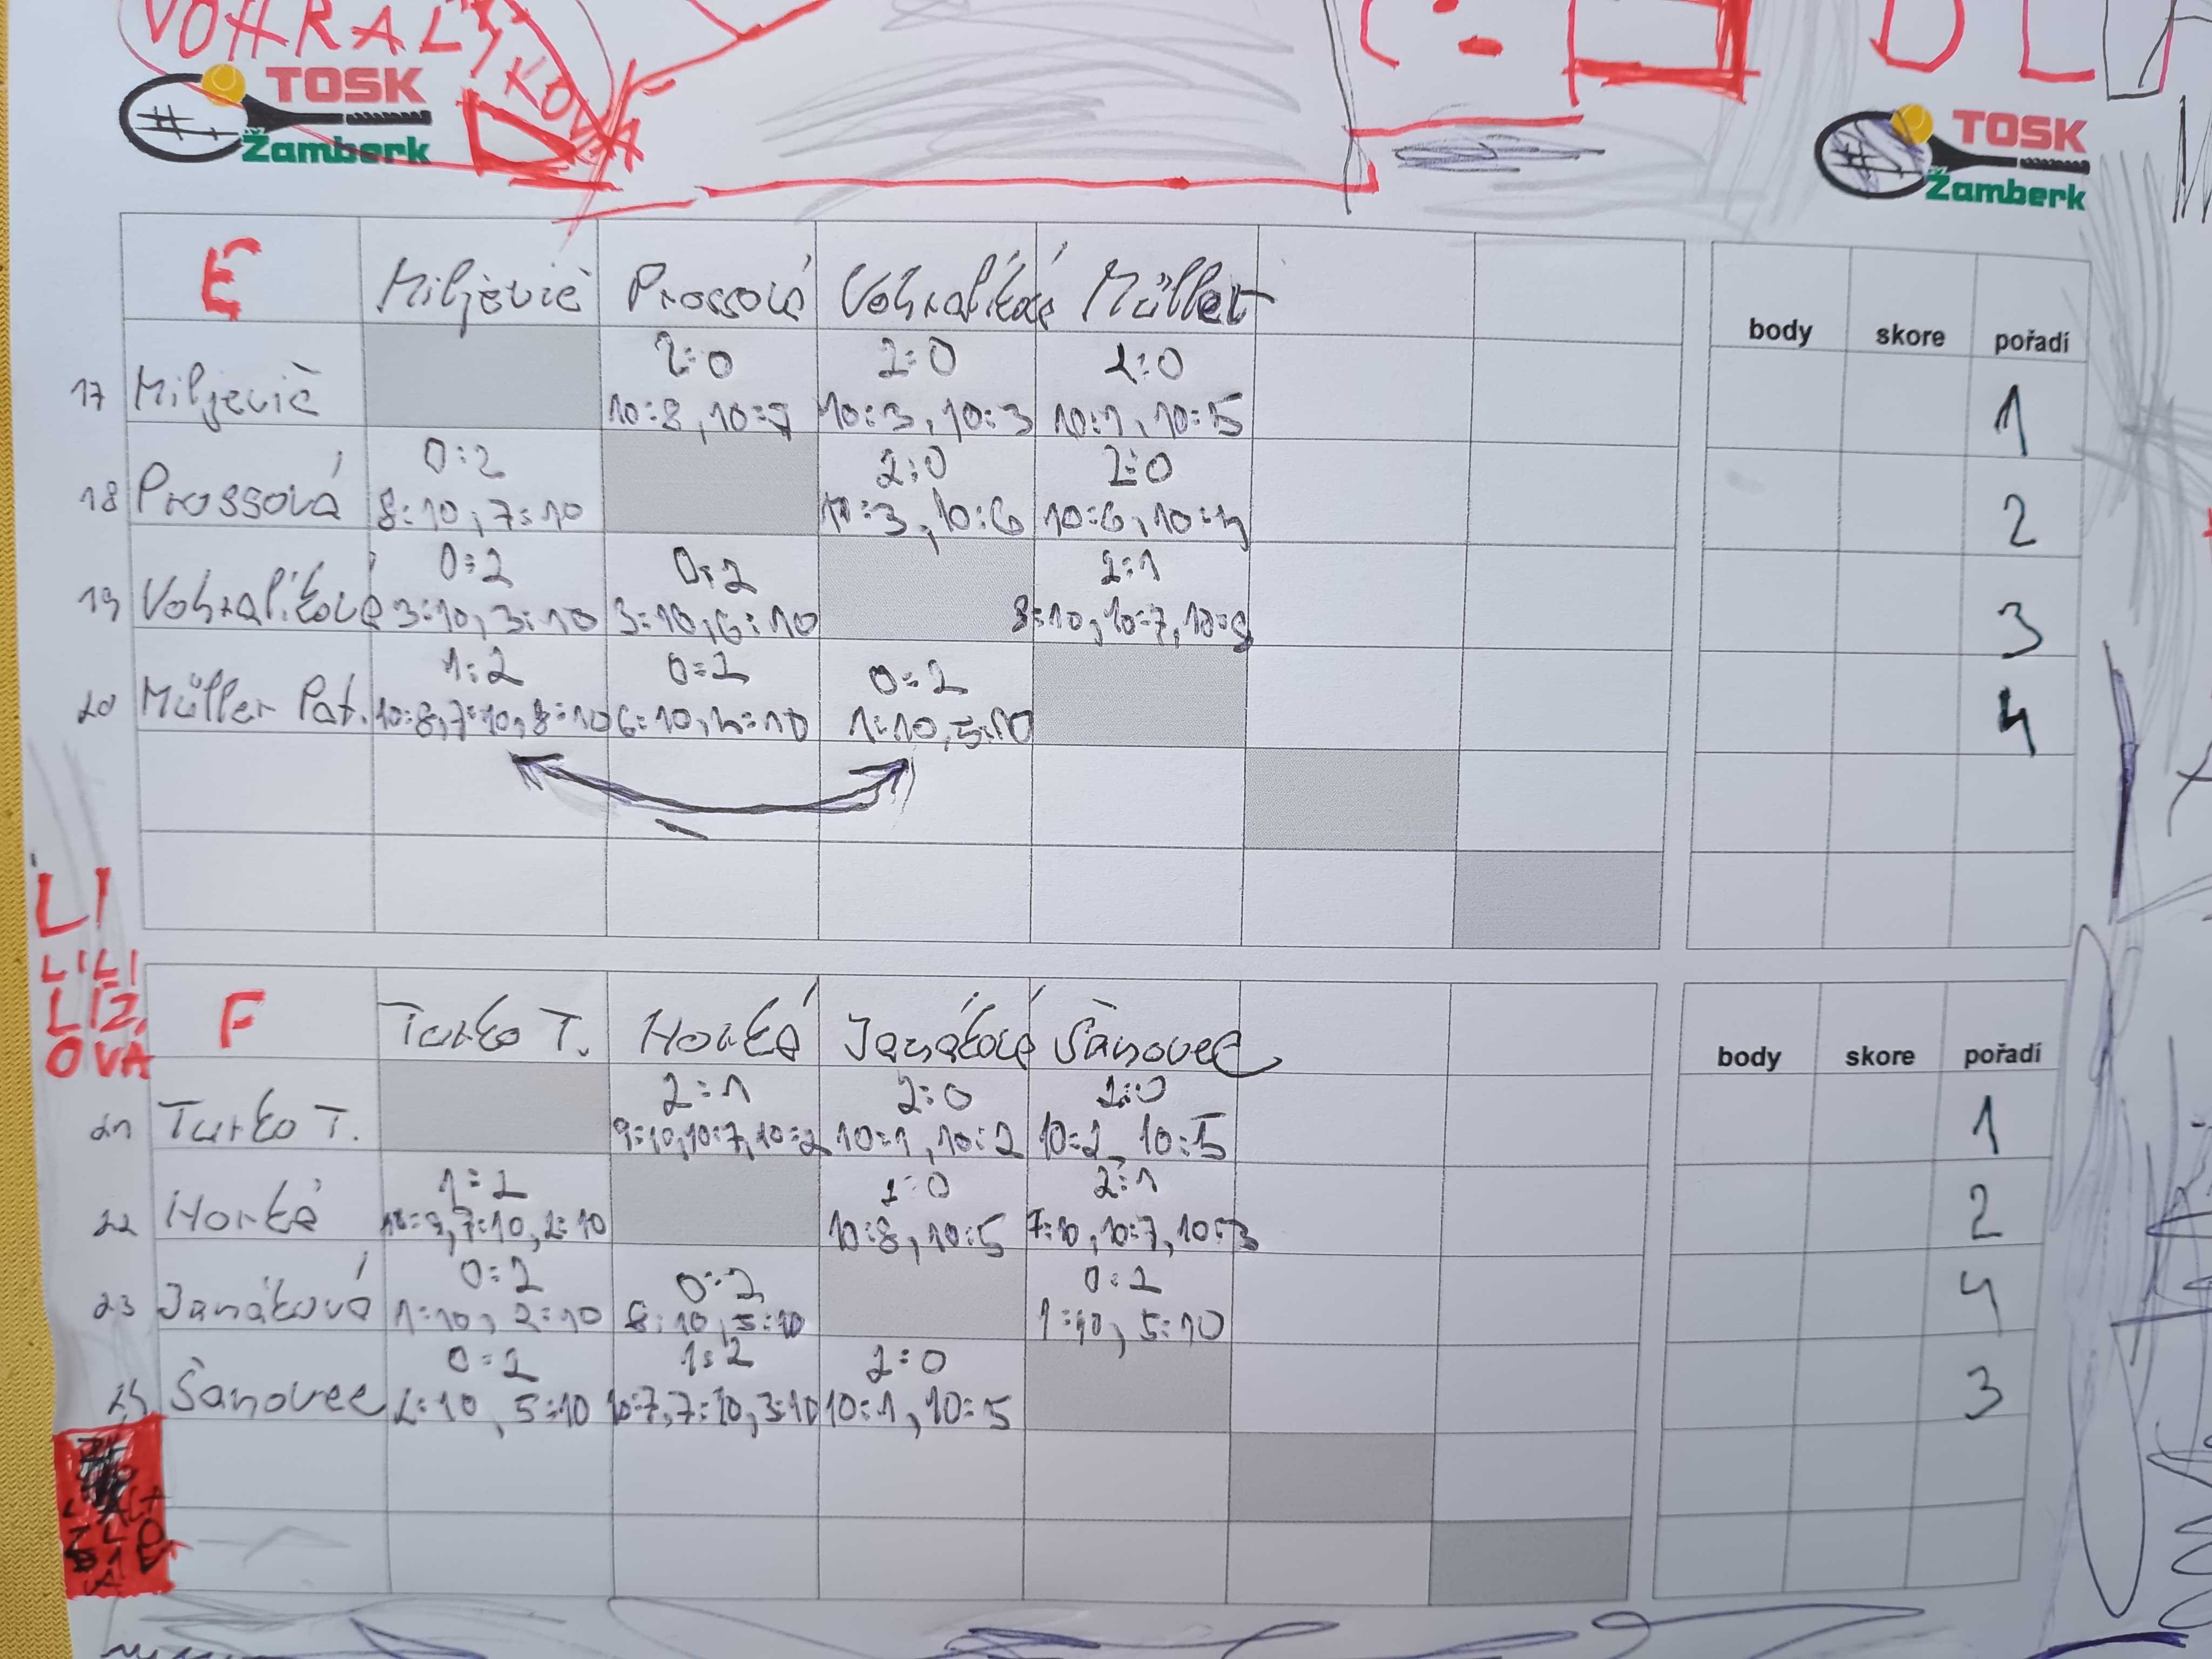 VOHRALÍKOVÁ
TOSK
Žamberk
TOSK
Žamberk
E Miljevič Prossová Vohralíková Müller
body skore pořadí
2:0 2:0 2:0
17 Miljevič 10:8, 10:7 10:3, 10:3 10:1, 10:5 1
0:2 2:0 2:0
18 Prossová 8:10, 7:10 10:3, 10:6 10:6, 10:4 2
0:2 0:2 2:1
19 Vohralíková 3:10, 3:10 3:10, 6:10 8:10, 10:7, 10:8 3
1:2 0:2 0:2
20 Müller Pat. 10:8, 7:10, 8:10 6:10, 4:10 1:10, 5:10 4
LI
LILI
LIZ,
OVA
F Turko T. Horká Janáková Šanovec
body skore pořadí
2:1 2:0 2:0
21 Turko T. 9:10, 10:7, 10:2 10:1, 10:2 10:2 10:5 1
1:2 2:0 2:1
22 Horká 10:9, 7:10, 2:10 10:8, 10:5 7:10, 10:7, 10:3 2
0:2 0:2 0:2
23 Janáková 1:10, 2:10 8:10, 5:10 1:10, 5:10 4
0:2 1:2 2:0
24 Šanovec 2:10, 5:10 10:7, 7:10, 3:10 10:1, 10:5 3